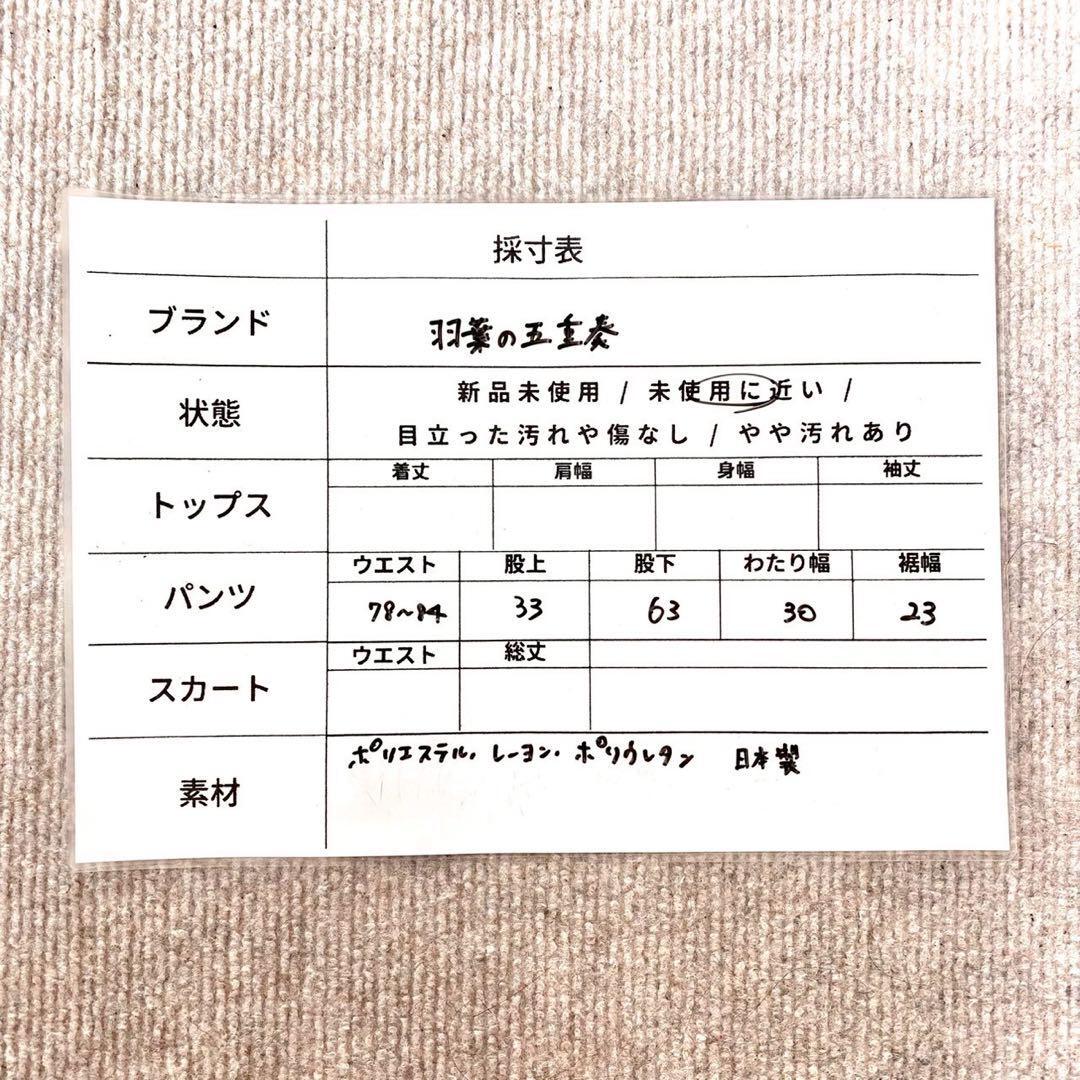 採寸表
ブランド
羽葉の五重奏
状態
新品未使用 / 未使用に近い /
目立った汚れや傷なし / やや汚れあり
トップス
着丈 肩幅 身幅 袖丈
パンツ
ウエスト 股上 股下 わたり幅 裾幅
78~84 33 63 30 23
スカート
ウエスト 総丈
素材
ポリエステル、レーヨン・ポリウレタン 日本製